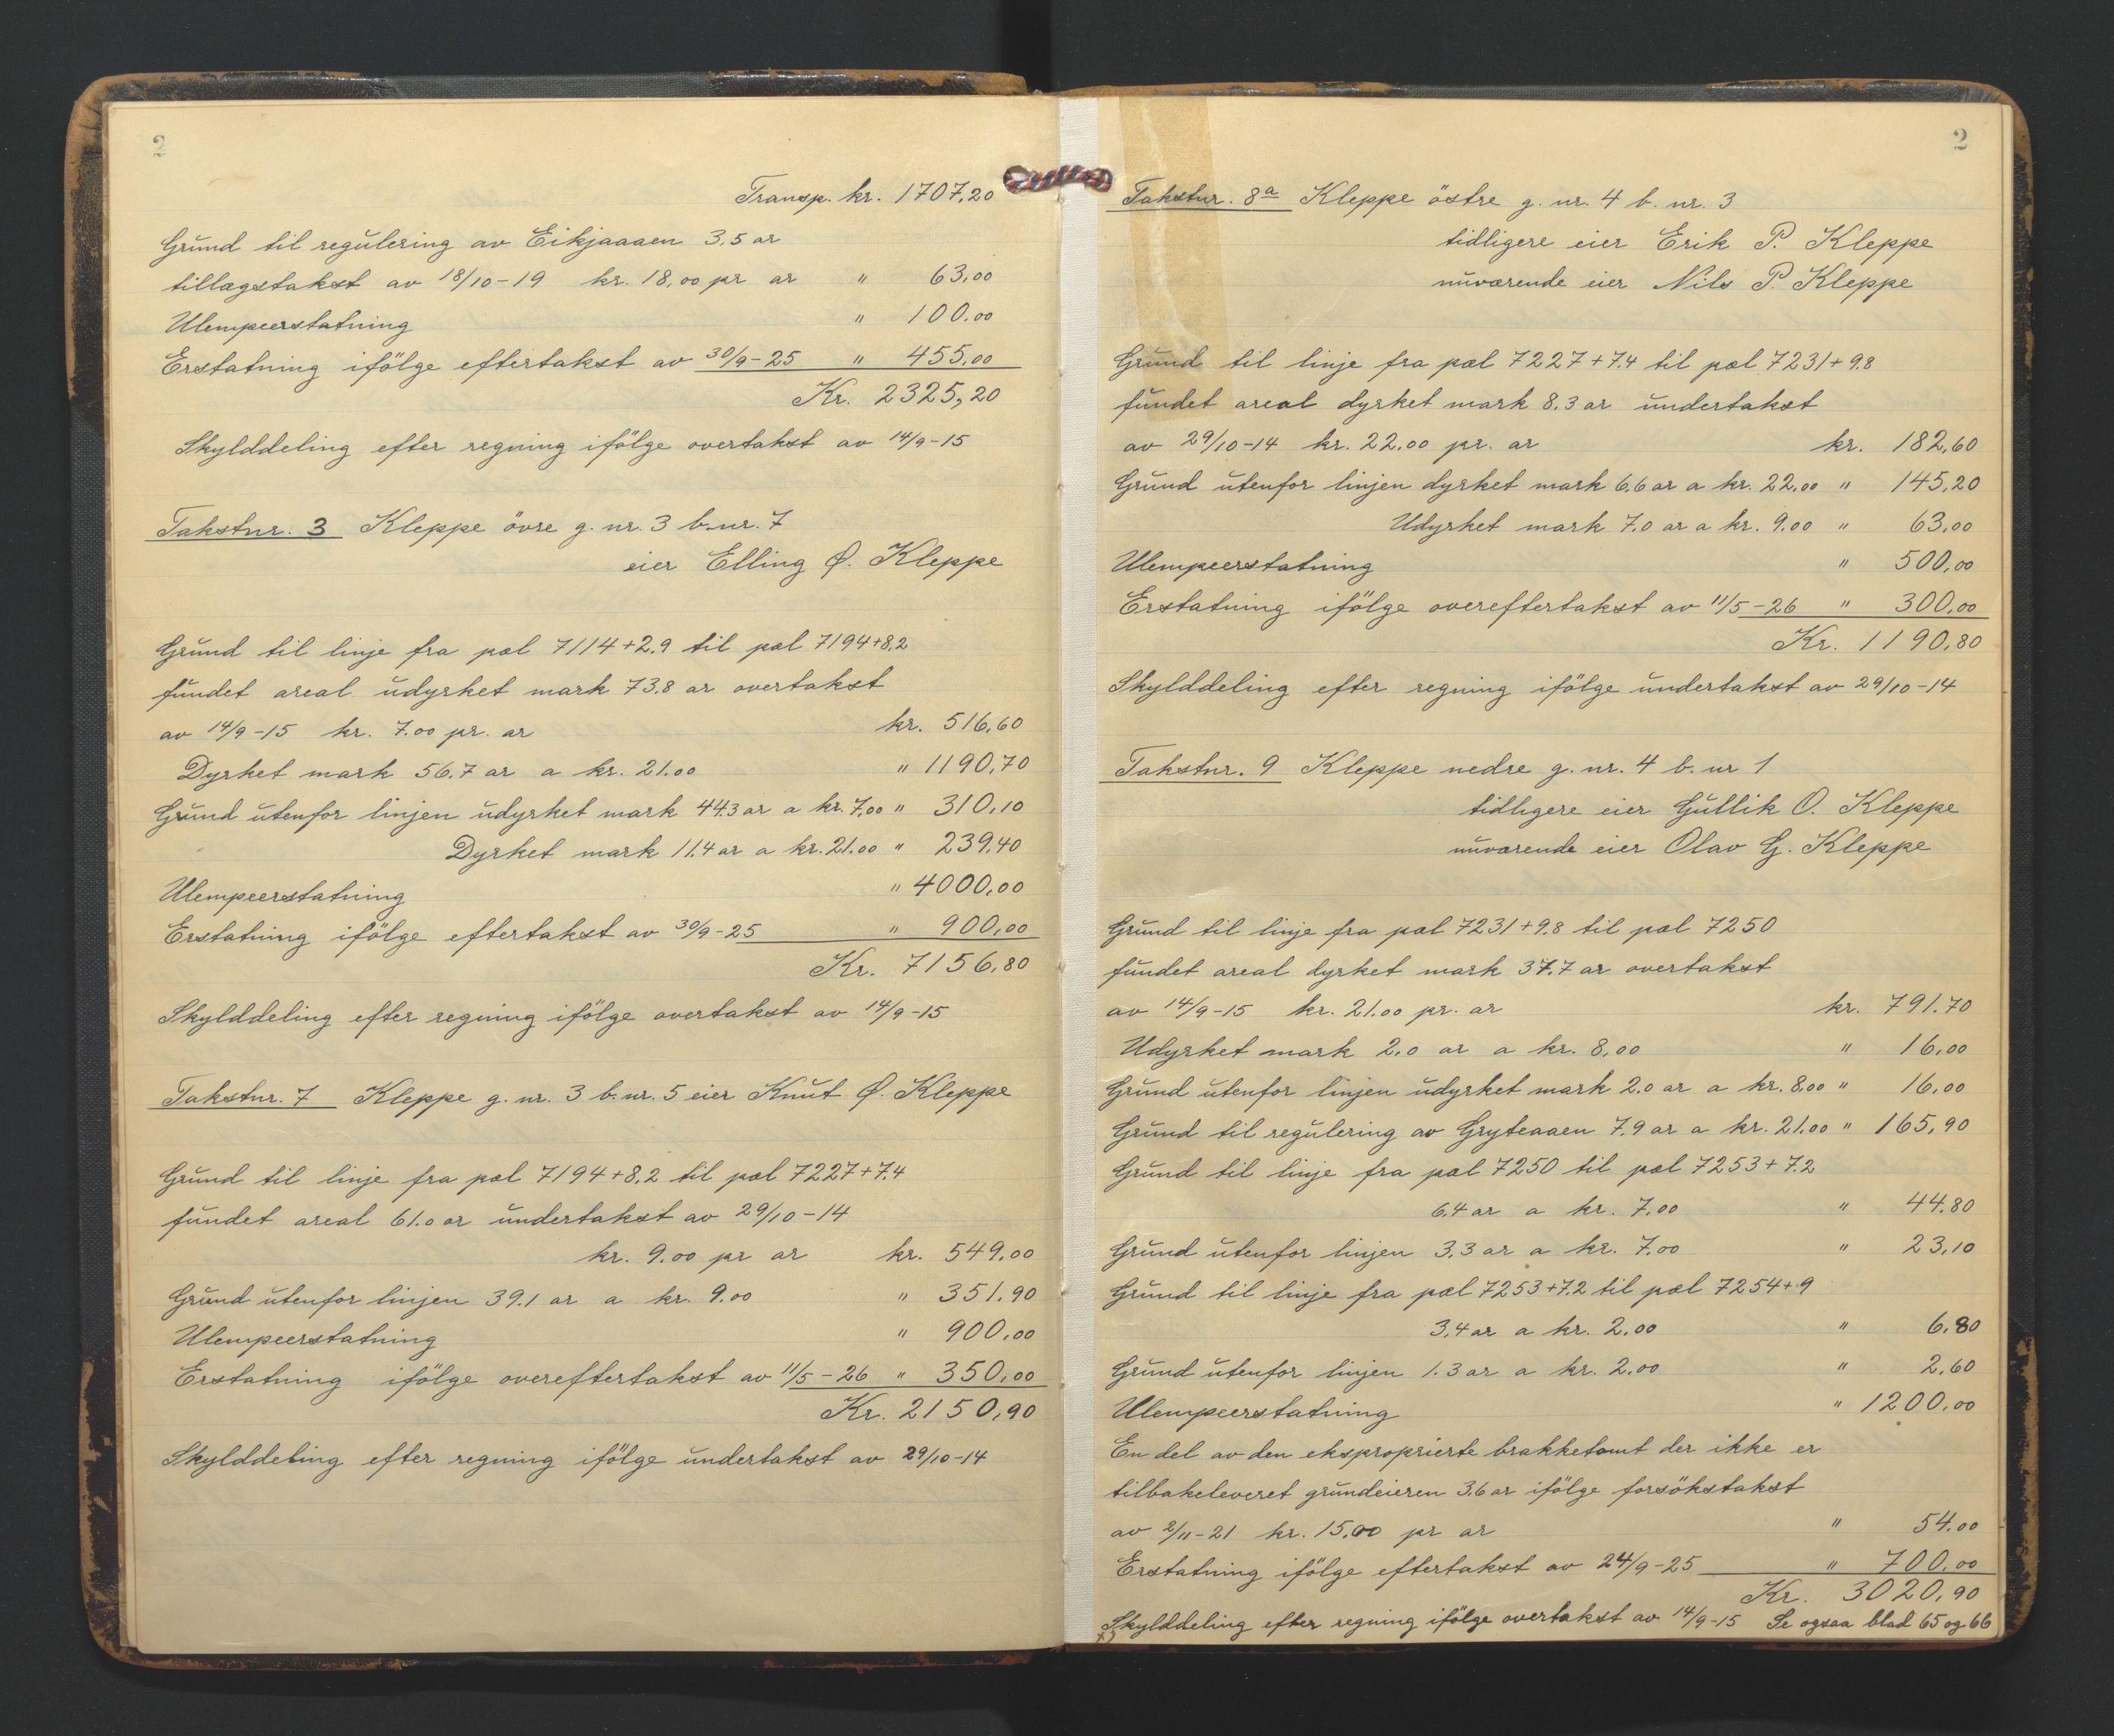 2
Transp. kr. 1707,20
Grund til regulering av Eikjaaaen 3,5 ar
tillægstakst av 18/10-19 kr. 18,00 pr ar " 63,00
Ulempeerstatning " 100.00
Erstatning ifölge eftertakst av 30/9-25 " 455,00
Kr. 2325,20
Skylddeling efter regning ifölge overtakst av 14/9-15
Takstnr. 3 Kleppe övre g. nr. 3 b. nr. 7
eier Elling Ø. Kleppe
Grund til linje fra pæl 7114+2.9 til pæl 7194+8,2
fundet areal udyrket mark 73.8 ar overtakst
av 14/9-15 kr. 7.00 pr. ar kr. 516,60
Dyrket mark 56.7 ar a kr. 21.00 " 1190,70
Grund utenfor linjen udyrket mark 44.3 ar a kr. 7,00 " 310,10
Dyrket mark 11.4 ar a kr. 21.00 " 239.40
Ulempeerstatning " 4000,00
Erstatning ifölge eftertakst av 30/9-25 " 900,00
Kr. 7156,80
Skylddeling efter regning ifölge overtakst av 14/9-15
Takstnr. 7 Kleppe g. nr. 3 b. nr. 5 eier Knut Ø. Kleppe
Grund til linje fra pæl 7194+8,2 til pæl 7227+7.4
fundet areal 61.0 ar undertakst av 29/10-14
kr. 9.00 pr ar kr. 549,00
Grund utenfor linjen 39.1 ar a kr. 9.00 " 351.90
Ulempeerstatning " 900,00
Erstatning ifölge overeftertakst av 11/5-26 " 350,00
Kr. 2150,90
Skylddeling efter regning ifölge undertakst av 29/10-14
2
Takstnr. 8a Kleppe östre g. nr. 4 b. nr. 3
tidligere eier Erik P. Kleppe
nuværende eier Nils P. Kleppe
Grund til linje fra pæl 7227+7.4 til pæl 7231+9.8
fundet areal dyrket mark 8.3 ar undertakst
av 29/10-14 kr. 22.00 pr. ar kr. 182,60
Grund utenfor linjen dyrket mark 6,6 ar a kr. 22,00 " 145,20
Udyrket mark 7.0 ar a kr. 9.00 " 63,00
Ulempeerstatning " 500,00
Erstatning ifölge overeftertakst av 11/5-26 " 300,00
Kr. 1190,80
Skylddeling efter regning ifölge undertakst av 29/10-14
Takstnr. 9 Kleppe nedre g. nr. 4 b. nr 1
tidligere eier Gullik O. Kleppe
nuværende eier Olav G. Kleppe
Grund til linje fra pæl 7231+9.8 til pæl 7250
fundet areal dyrket mark 37.7 ar overtakst
av 14/9-15 kr. 21.00 pr. ar kr. 791.70
Udyrket mark 2,0 ar a kr. 8,00 " 16,00
Grund utenfor linjen udyrket mark 2.0 ar a kr. 8.00 " 16,00
Grund til regulering av Gryteaaen 7.9 ar a kr. 21.00 " 165,90
Grund til linje fra pæl 7250 til pæl 7253+7.2
6,4 ar a kr. 7,00 " 44.80
Grund utenfor linjen 3,3 ar a kr. 7,00 " 23,10
Grund til linje fra pæl 7253+7.2 til pæl 7254+9
3,4 ar a kr. 2.00 " 6,80
Grund utenfor linjen 1.3 ar a kr. 2.00 " 2,60
Ulempeerstatning " 1200,00
En del av den eksproprierte brakketomt der ikke er
tilbakeleveret grundeieren 3,6 ar ifölge forsökstakst
av 2/11-21 kr. 15,00 pr ar " 54.00
Erstatning ifölge eftertakst av 24/9-25 " 700,00
Kr. 3020,90
Skylddeling efter regning ifölge overtakst av 14/9-15 Se ogsaa blad 65 og 66